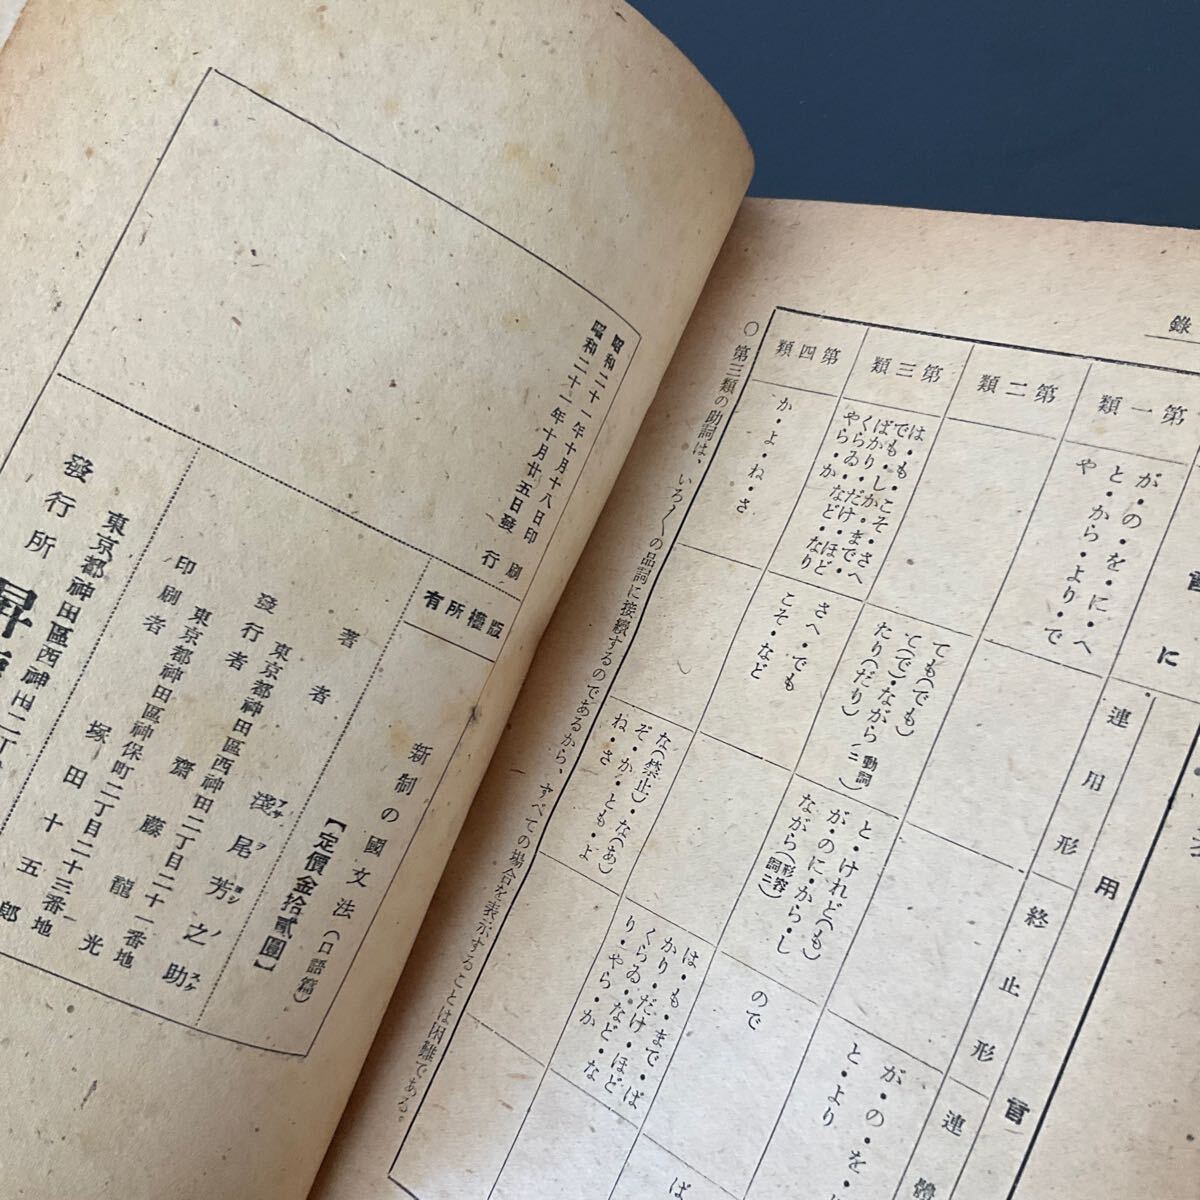 錄
第一類
が・の・を・に・へ
と・から・より・で
や
第二類
第三類
は・も・こそ・さへ
でも・しか・まで・
ばかり・だけ・ほど
くらゐ・など・なり
やら・か
第四類
か・よ・ね・さ
に
連用形
ても(でも)
て(で)・ながら(動詞ニ)
たり(だり)
さへ・でも
こそ・など
用
終止形
と・けれど(も)
が・のに・から・し
ながら(形容詞ニ)
な(禁止)・な(あ)
ぞ・か・とも・よ
ね・さ
連體
が・の・を・
と・より
ので
は・も・まで・ば
かり・だけ・ほど
くらゐ・など・な
り・やら・か
ば
○第三類の助詞は、いろ〱の品詞に接續するのであるから、すべての場合を表示することは困難である。
昭和二十一年十月十八日印刷
昭和二十一年十月廿五日發行
版權所有
新制の國文法(口語篇)
【定價金拾貳圓】
著者 淺尾芳之助
東京都神田區西神田二丁目二十一番地
發行者 齋藤龍光
東京都神田區神保町二丁目二十三番地
印刷者 塚田十五郎
東京都神田區西神田二丁
發行所 昇